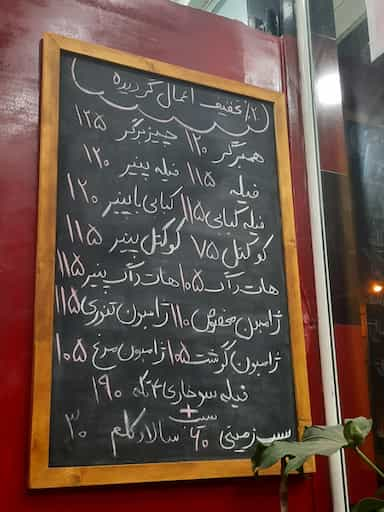 ۲۰٪ تخفیف اعمال گردیده
همبرگر ۱۲۰ چیزبرگر ۱۲۵
فیله ۱۱۵ فیله پنیر ۱۲۰
فیله کبابی ۱۱۵ کبابی با پنیر ۱۲۰
کوکتل ۷۵ کوکتل پنیر ۱۱۵
هات داگ ۱۰۵ هات داگ پنیر ۱۱۵
ژامبون مخصوص ۱۱۰ ژامبون تنوری ۱۱۵
ژامبون گوشت ۱۰۵ ژامبون مرغ ۱۰۵
فیله سوخاری ۴ تکه + سیب ۱۹۰
سیب زمینی ۶۰ سالاد کلم ۳۰